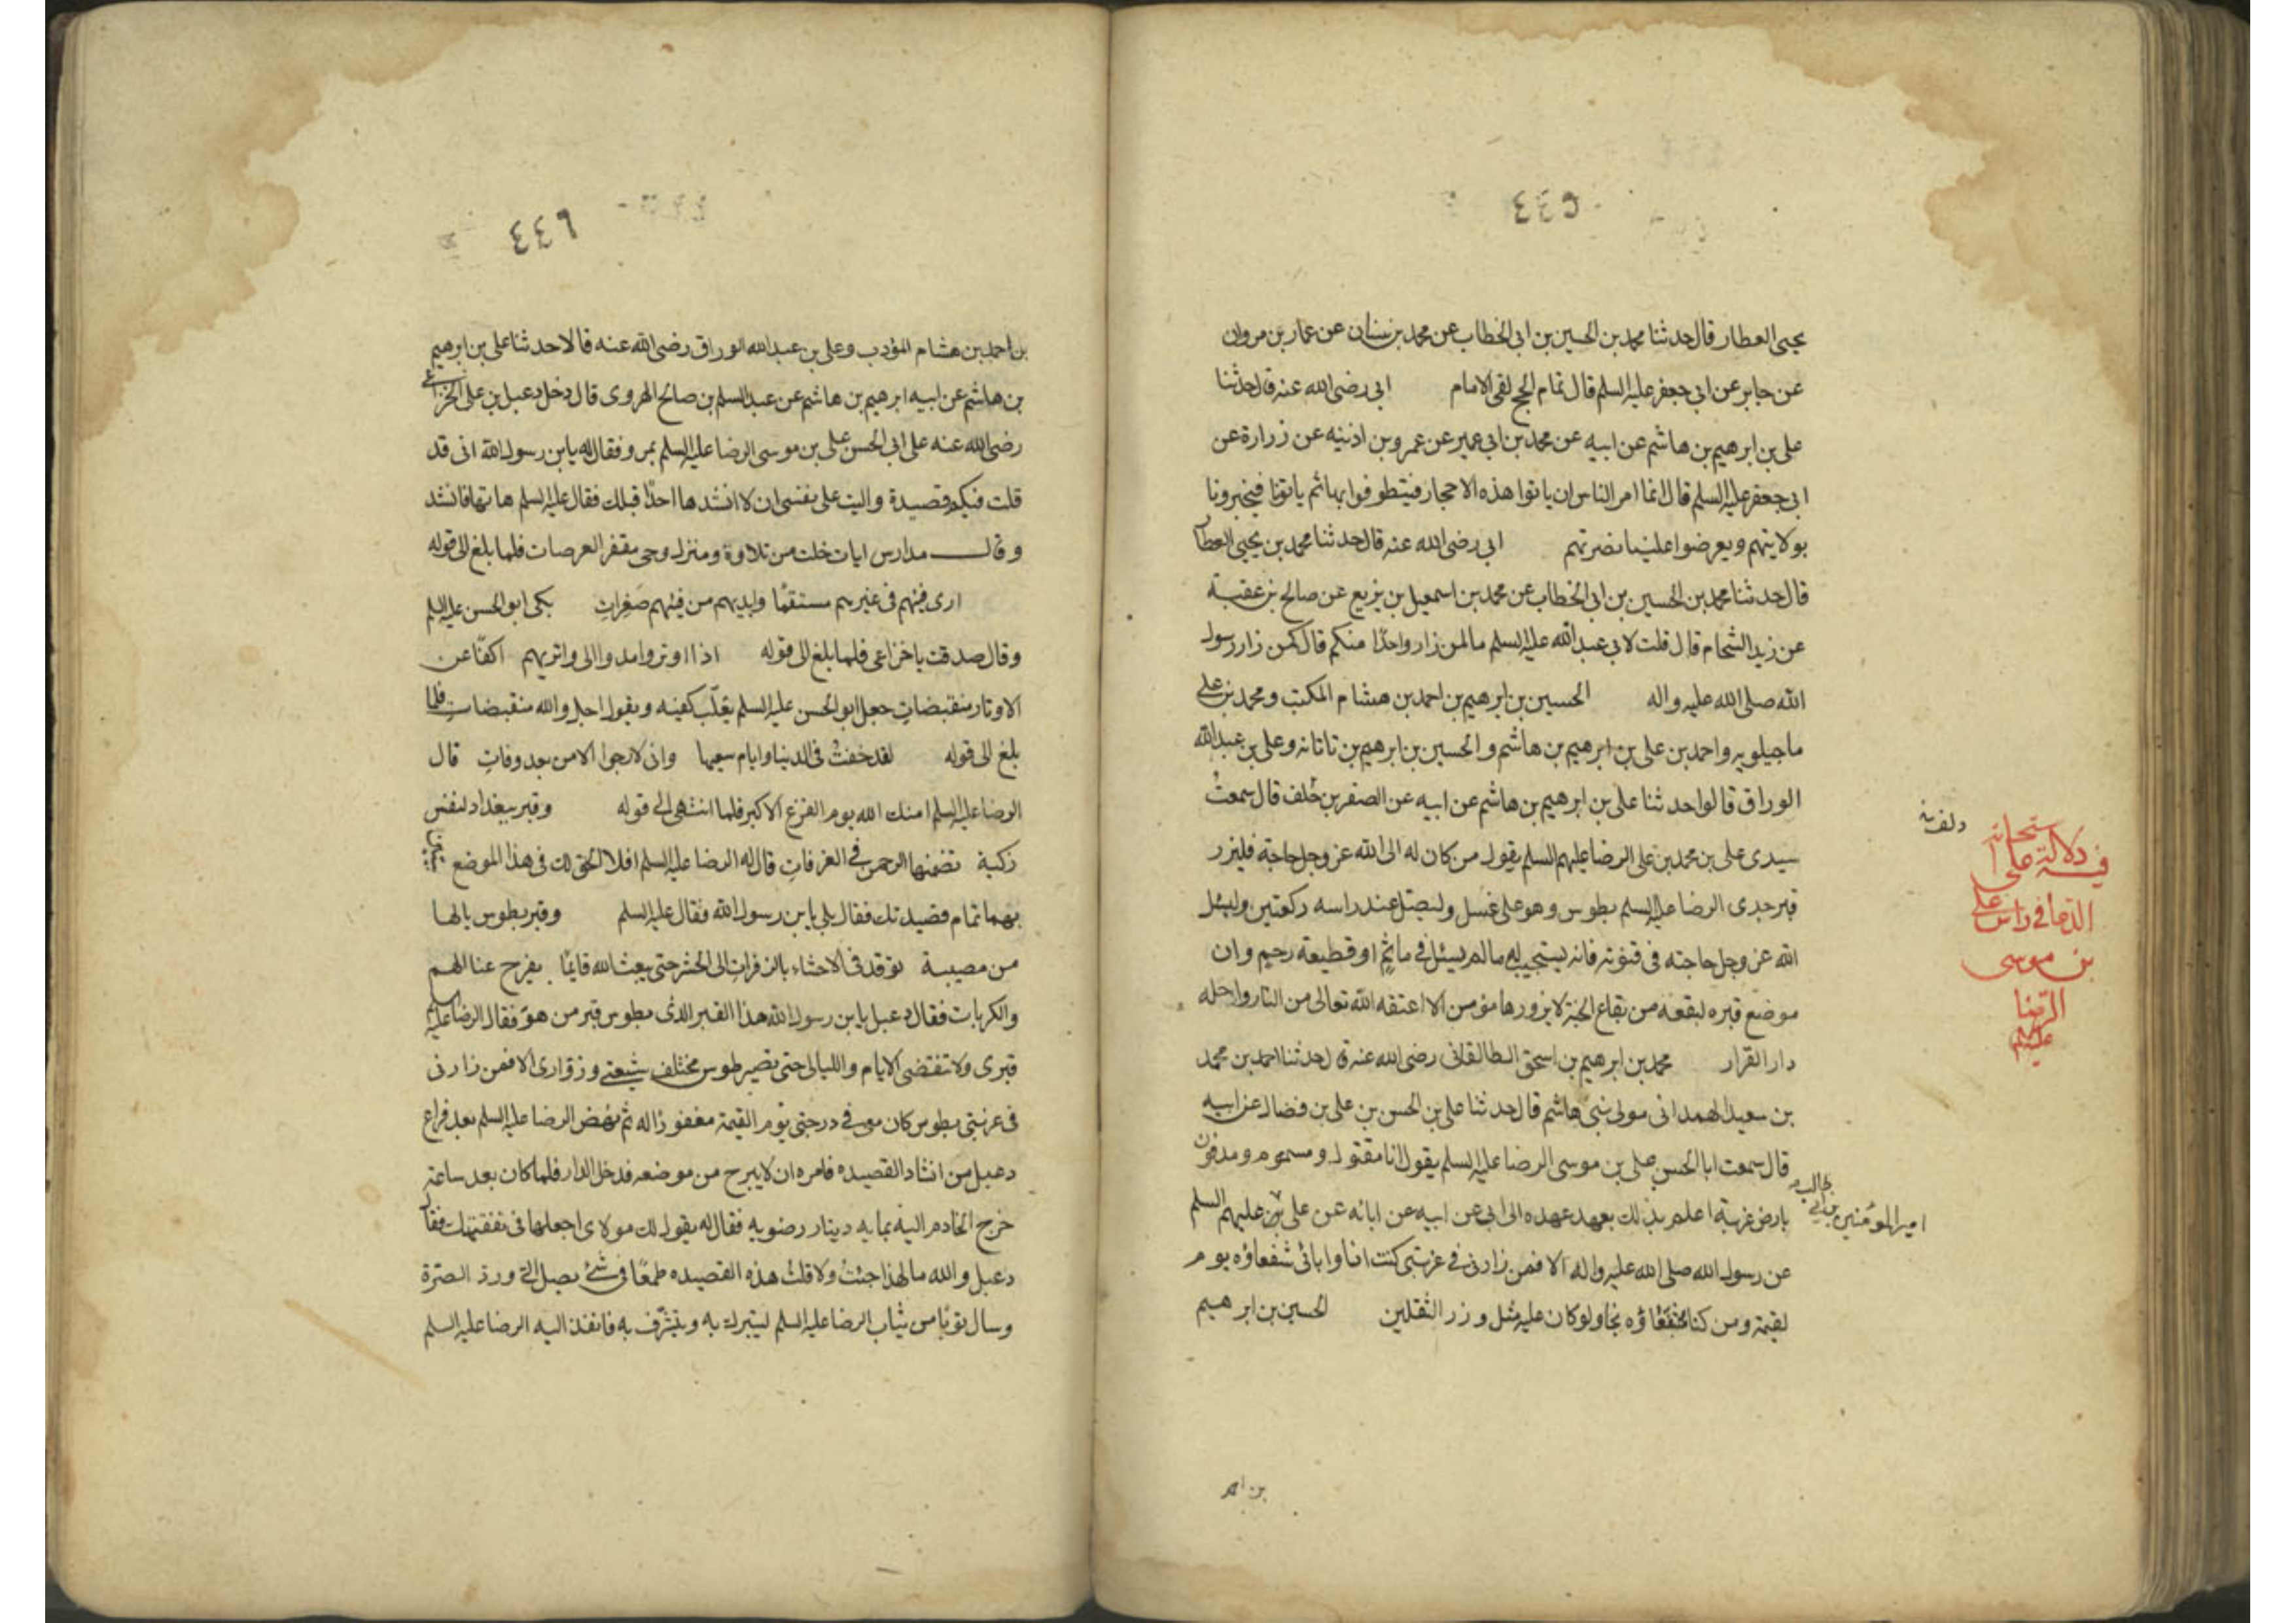 ٤٤٥
يحيى العطار قال حدثنا محمد بن الحسين بن ابى الخطاب عن محمد بن سنان عن عمار بن مروان
عن جابر عن ابى جعفر عليه السلم قال تمام الحج لقى الامام ابى رضى الله عنه قال حدثنا
على بن ابرهيم بن هاشم عن ابيه عن محمد بن ابى عمير عن عمر وبن اذنيه عن زرارة عن
ابى جعفر عليه السلم قال انما امر الناس ان ياتوا هذه الاحجار فيتطوفوا بها ثم ياتونا فيخبرونا
بولايتهم ويعرضوا علينا نصرتهم ابى رضى الله عنه قال حدثنا محمد بن يحيى العطار
قال حدثنا محمد بن الحسين بن ابى الخطاب عن محمد بن اسمعيل بن بزيع عن صالح بن عقبة
عن زيد الشحام قال قلت لابى عبد الله عليه السلم ما لمن زار واحدًا منكم قال كمن زار رسول
الله صلى الله عليه واله الحسين بن ابرهيم بن احمد بن هشام المكتب ومحمد بن على
ماجيلويه واحمد بن على بن ابرهيم بن هاشم والحسين بن ابرهيم بن تاتانه وعلى بن عبد الله
الوراق قالوا حدثنا على بن ابرهيم بن هاشم عن ابيه عن الصقر بن خلف قال سمعت
دلف
سيدى على بن محمد بن على الرضا عليهم السلم يقول من كان له الى الله عز وجل حاجة فليزر
قبر جدى الرضا عليه السلم بطوس وهو على غسل وليصل عند راسه ركعتين وليسئل
الله عز وجل حاجته فى قنوته فانه يستجيب له مالم يسئل فى ماثم او قطيعة رحيم وان
موضع قبره لبقعه من بقاع الجنة لا يزورها مؤمن الا اعتقه الله تعالى من النار وادخله
دار القرار محمد بن ابرهيم بن اسحق الطالقانى رضى الله عنه قال حدثنا احمد بن محمد
بن سعيد الهمدانى مولى بنى هاشم قال حدثنا على بن الحسن بن على بن فضال عن ابيه
قال سمعت ابا الحسن على بن موسى الرضا عليه السلم يقول انا مقتول ومسموم ومدفون
بارض غربة اعلم بذلك بعهد عهده الى ابى عن ابيه عن ابائه عن على عليهم السلم
امير المؤمنين بن ابى طالب
عن رسول الله صلى الله عليه واله الا فمن زارنى فى غربتى كنت انا وابائى شفعاؤه يوم
لقيمة ومن كنا شفعاؤه نجا ولو كان عليه مثل وزر الثقلين الحسين بن ابرهيم
بن احمد
فيه دلالة على استجابة
الدعا فى راس على
بن موسى
الرضا
عليه السلم
٤٤٦
بن احمد بن هشام المؤدب وعلى بن عبد الله الوراق رضى الله عنه قالا حدثنا على بن ابرهيم
بن هاشم عن ابيه ابرهيم بن هاشم عن عبد السلم بن صالح الهروى قال دخل دعبل بن على الخزاعى
رضى الله عنه على ابى الحسن على بن موسى الرضا عليه السلم بمرو فقال له يابن رسول الله انى قد
قلت فيكم قصيدة واليت على نفسى ان لا انشدها احدًا قبلك فقال عليه السلم هاتها فانشد
وقال مدارس ايات خلت من تلاوة ومنزل وحى مقفر العرصات فلما بلغ الى قوله
ارى فيئهم فى غيرهم مستقمًا وايديهم من فيئهم صفرات بكى ابو الحسن عليه السلم
وقال صدقت يا خزاعى فلما بلغ الى قوله اذا اوتروا مدوا الى واتريهم اكفًا عن
الاوتار منقبضات جعل ابو الحسن عليه السلم يقلب كفيه ويقول اجل والله منقبضات فلما
بلغ الى قوله لقد خفت فى الدنيا وايام سعيها وانى لارجوا الامن بعد وفات قال
الرضا عليه السلم امنك الله يوم الفزع الاكبر فلما انتهى الى قوله وقبر ببغداد لنفس
زكية تضمنها الرحمن فى الغرفات قال له الرضا عليه السلم افلا الحق لك فى هذا الموضع بيتين
بهما تمام قصيدتك فقال بلى يابن رسول الله فقال عليه السلم وقبر بطوس يالها
من مصيبة توقد فى الاحشاء بالزفرات الى الحشر حتى يبعث الله قايمًا يفرج عنا الهم
والكربات فقال دعبل يابن رسول الله هذا القبر الذى بطوس قبر من هو فقال الرضا عليه السلم
قبرى ولا تنقضى الايام والليالى حتى تصير طوس مختلف شيعتى وزوارى الا فمن زارنى
فى غربتى بطوس كان معى فى درجتى يوم القيمة مغفورًا له ثم نهض الرضا عليه السلم بعد فراغ
دعبل من انشاد القصيده فامره ان لا يبرح من موضعه فدخل الدار فلما كان بعد ساعة
خرج الخادم اليه بمايه دينار رضويه فقال له يقول لك مولاى اجعلها فى نفقتك فقال
دعبل والله ما لهذا جئت ولا قلت هذه القصيده طمعًا فى شئ يصل الى ورد الصرة
وسال ثوبًا من ثياب الرضا عليه السلم ليتبرك به ويتشرف به فانفذ اليه الرضا عليه السلم